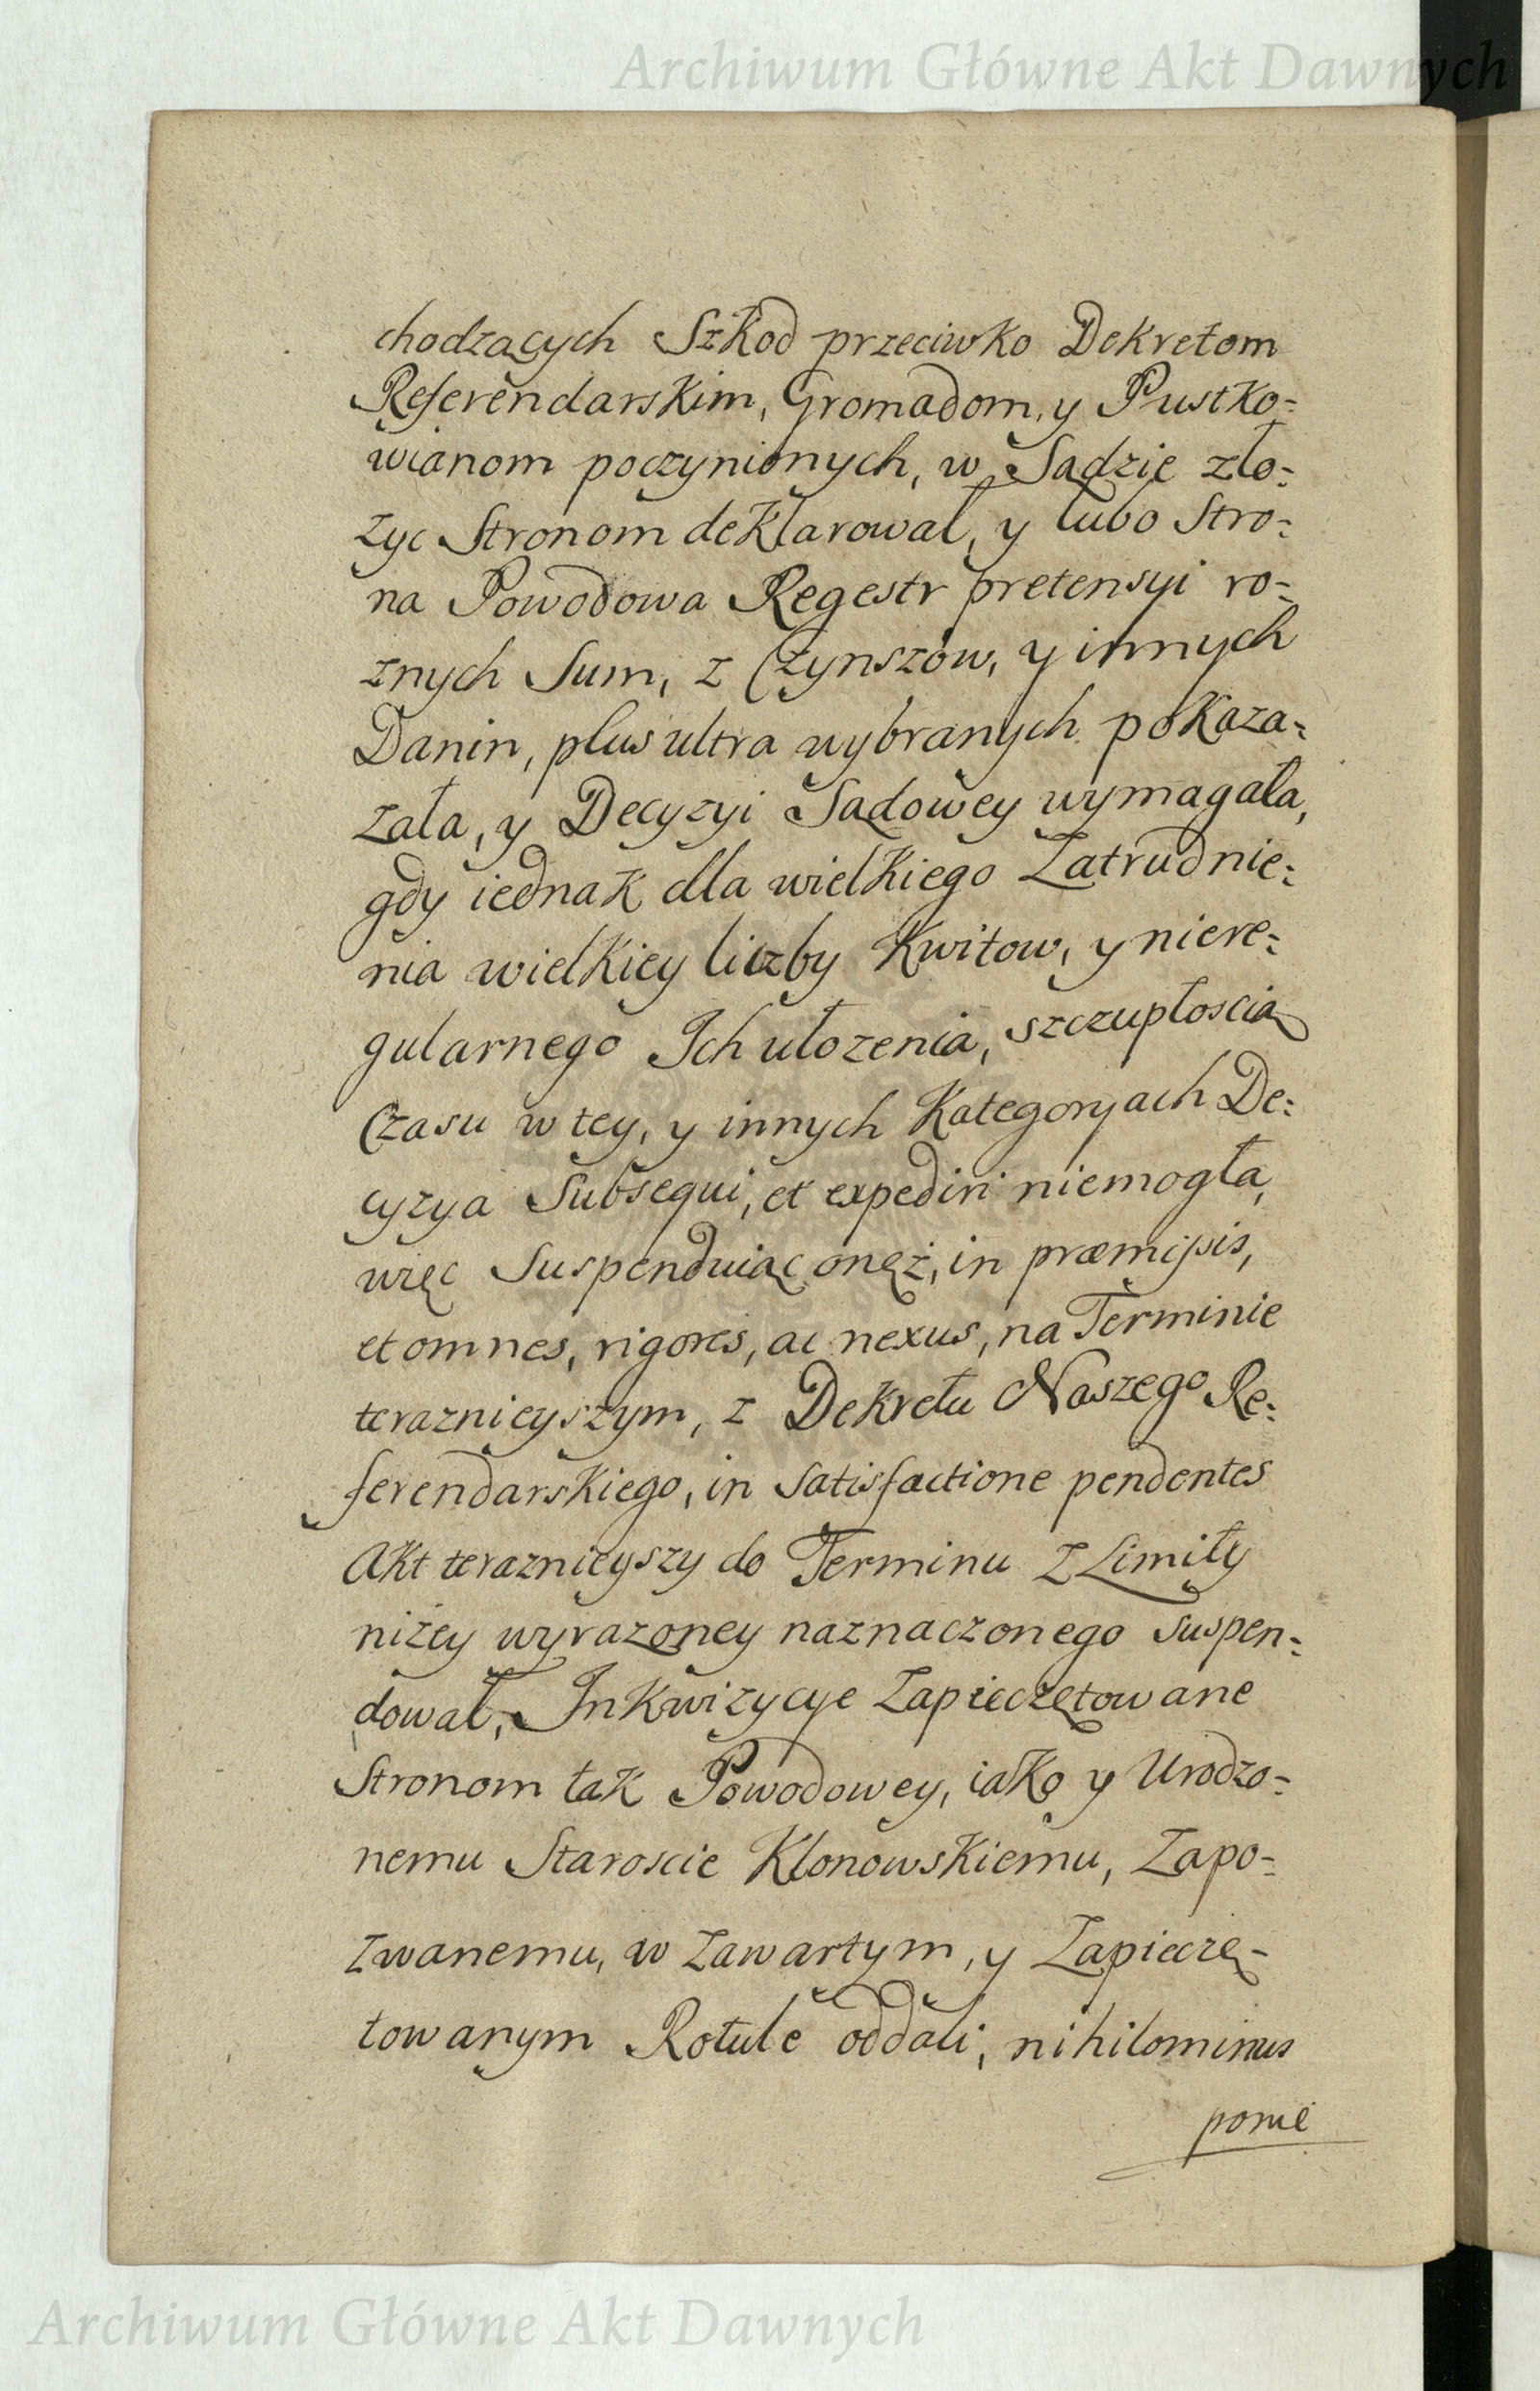 Archiwum Główne Akt Dawnych
chodzących Szkod przeciwko Dekretom
Referendarskim, Gromadom, y Pustko=
wianom poczynionych, w Sądzie zło=
zyc Stronom deklarował, y lubo Stro=
na Powodowa Regestr pretensyi ro=
znych Sum, z Czynszów, y innych
Danin, plus ultra wybranych pokaza=
zała, y Decyzyi Sądowey wymagała,
gdy iednak dla wielkiego Zatrudnie=
nia wielkiey liczby Kwitow, y niere=
gularnego Ich ułozenia, szczupłoscią
Czasu w tey, y innych Kategoryach De=
cyzya Subsequi, et expediri niemogła,
więc Suspenduiąc onęż, in præmissis,
et omnes, rigores, ac nexus, na Terminie
teraznieyszym, z Dekretu Naszego Re=
ferendarskiego, in Satisfactione pendentes
Akt teraznieyszy do Terminu z Limity
niżey wyrazoney naznaczonego suspen=
dował, Inkwizycye Zapieczętowane
Stronom tak Powodowey, iako y Urodzo=
nemu Staroscie Klonowskiemu, Zapo=
zwanemu, w zawartym, y Zapieczę=
towanym Rotule oddali, nihilominus
ponie
Archiwum Główne Akt Dawnych